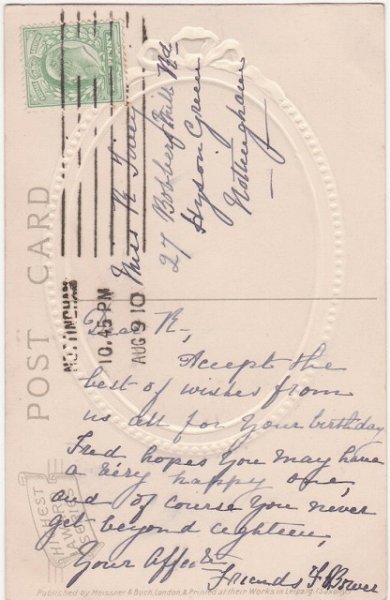 POST CARD
NOTTINGHAM
10.45 PM
AUG 9 10
Miss K
27 Bobbers Mill Rd
Hyson Green
Nottingham
Dear K,
Accept the
best of wishes from
us all for your birthday
Fred hopes you may have
a very happy one,
and of course you never
get beyond eighteen,
Your Affct
Friends F Bower
Published by Meissner & Buch, London, & Printed at their Works in Leipzig, (Saxony).